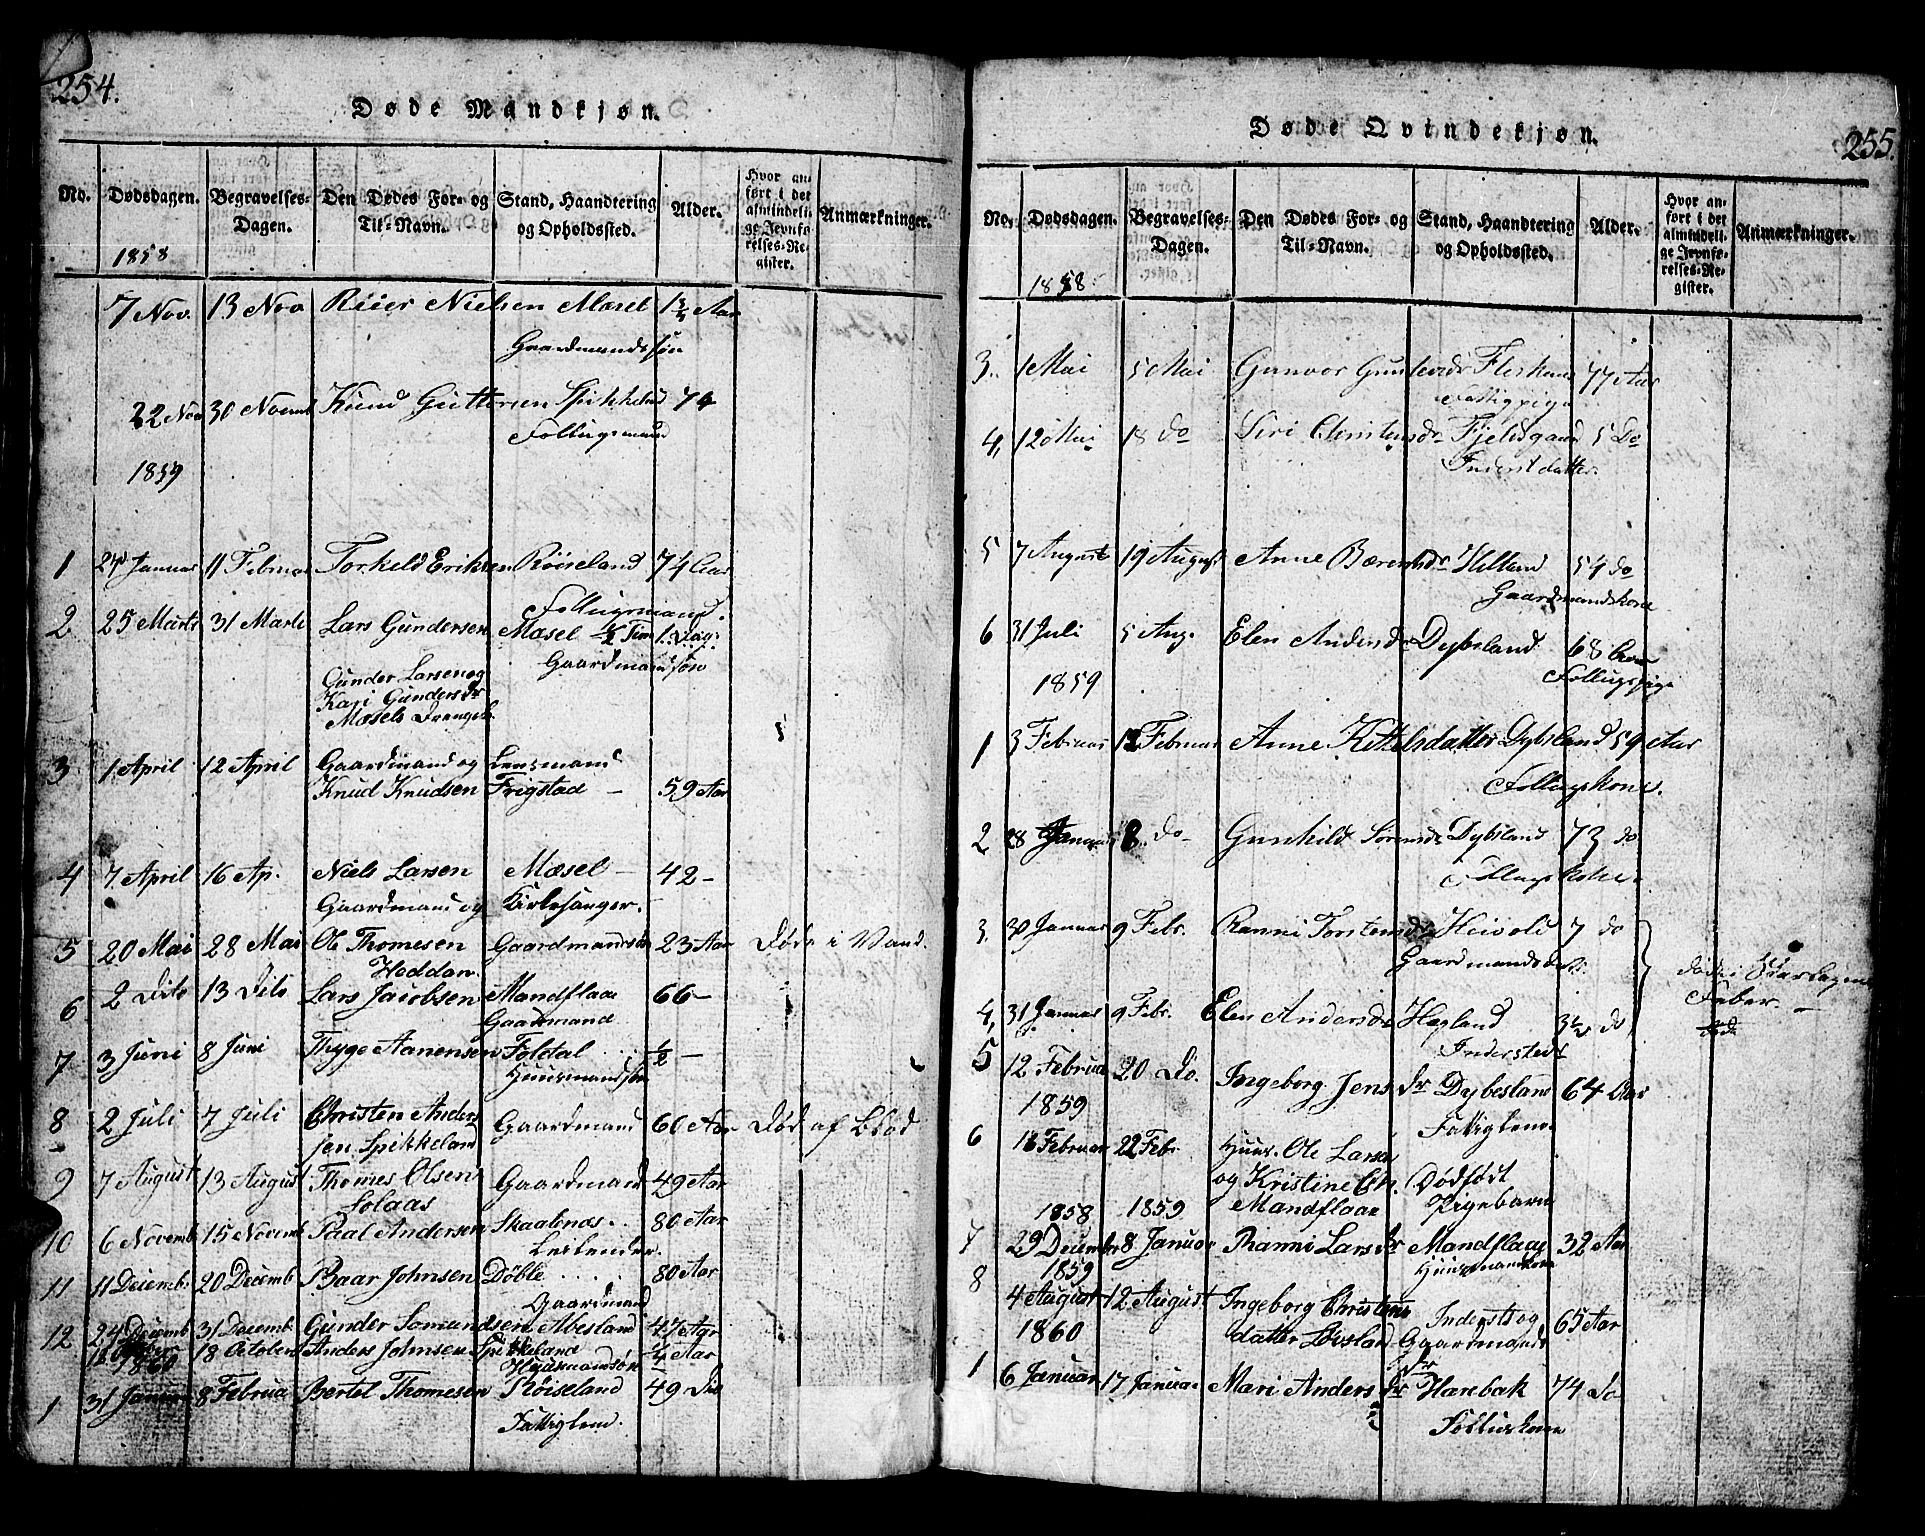 254.
Døde Mandkjøn.
No. Dødsdagen. Begravelses-Dagen. Den Dødes For- og Til-Navn. Stand, Haandtering og Opholdssted. Alder. Hvor anført i det almindelige Jevnførelses-Register. Anmærkninger.
1858
7 Nov. 13 Nov Reier Nielsen Mæsel 1 Aar
Gaardmandssøn
22 Nov 30 Novemb Knud Guttorm Spikkeland 74
Follugsmand
1859
1 24 Januar 11 Februar Torkeld Eriksen Røiseland 74 Aar
Follugsmand.
2 25 Marts 31 Marts Lars Gundersen Mæsel 1/2 Tim
Gaardmandssøn
Gunder Larsen og
Kari Gundersdr
Mæsels
3 1 April 12 April Gaardmand og Lensmand
Knud Knudsen Frigstad — 59 Aar
4 7. April 16 Ap. Niels Larsen Mæsel — 42 —
Gaardmand og Kirkesanger.
5 20 Mai 28 Mai Ole Thomesen Gaardmandsøn 23 Aar Døde i Vand.
Heddan.
6 2 Dito 13 Dito Lars Jacobsen Mandflaa 66 —
Gaardmand
7 3 Juni 8 Juni Thyge Aanensen Foldal 1/2 —
Huusmandssøn
8 2 Juli 7 Juli Christen Anders Gaardmand 60 Aar Død af Blod
sen Spikkeland
9 7 August 13 August Thomes Olsen Gaardmand 49 Aar
Solaas
10 6 Novemb 15 Novemb Paal Andersen Skaatenæs.. 80 Aar
Leilender.
11 11 Decemb 20 Decemb Baar Johnsen Døble .... 80 Aar
Gaardmand
12 24 Decemb 31 Decemb Gunder Somundsen Abesland 47 Aar
18 October Anders Johnsen Spikkeland 1/4 Aar
1860 Huusmandsøn
1 31 Januar 8 Februa Bertel Thomesen Røiseland 49 Dio
Fattiglem.
255.
Døde Qvindekjøn.
No. Dødsdagen. Begravelses-Dagen. Den Dødes For- og Til-Navn. Stand, Haandtering og Opholdssted. Alder. Hvor anført i det almindelige Jevnførelses-Register. Anmærkninger.
1858.
3. 1 Mai 5 Mai Gunvor Gunlevsdr 77 Aar
Fattigpige
4, 12 Mai 18 do Siri Christensdr Fjeldsgaard 5 Do
Inderst datter.
5 7 August 19 August Anne Hilland 54 do
Gaardmandskone
6 31 Juli 5 Aug. Elen Andersdr Dybesland 68 Aar
Follugspige
1859
1 3 Februar 12 Februar Anne Kittelsdatter Dybsland 59 Aar
Follugskone.
2 28 Januar 8. do Gunhild Sørensdr Dybsland 73 do
Follugskone.
3. 30 Januar 9 Febr. Ranni Torstensdr Heivold 7 do
Gaardmandsdatr.
døde i Skarlagens
Feber —
4, 31 Januar 9 Febr. Elen Andersdr Hægland 3 1/2 do
Inderstedr
5 12 Februar 20 Do. Ingeborg Jens dr Dybesland 64 Aar
Fattiglem.
1859
6 18 Februar 22 Febr. Huus. Ole Larsen
og Kristine Chr. Dødfødt
Mandflaae Pigebarn
1858 1859
7 29 Decembr 8 Januar Ranni Lars dr Mandflaae 32 Aar
Huusmandskone
1859
8 4 August 12 August Ingeborg Christens Inderst og 65 Aar
datter Løvsland Gaardmands
dr
1860
1 6 Januar 17 Januar Mari Anders dr Harebak 74 Do
Folluskone